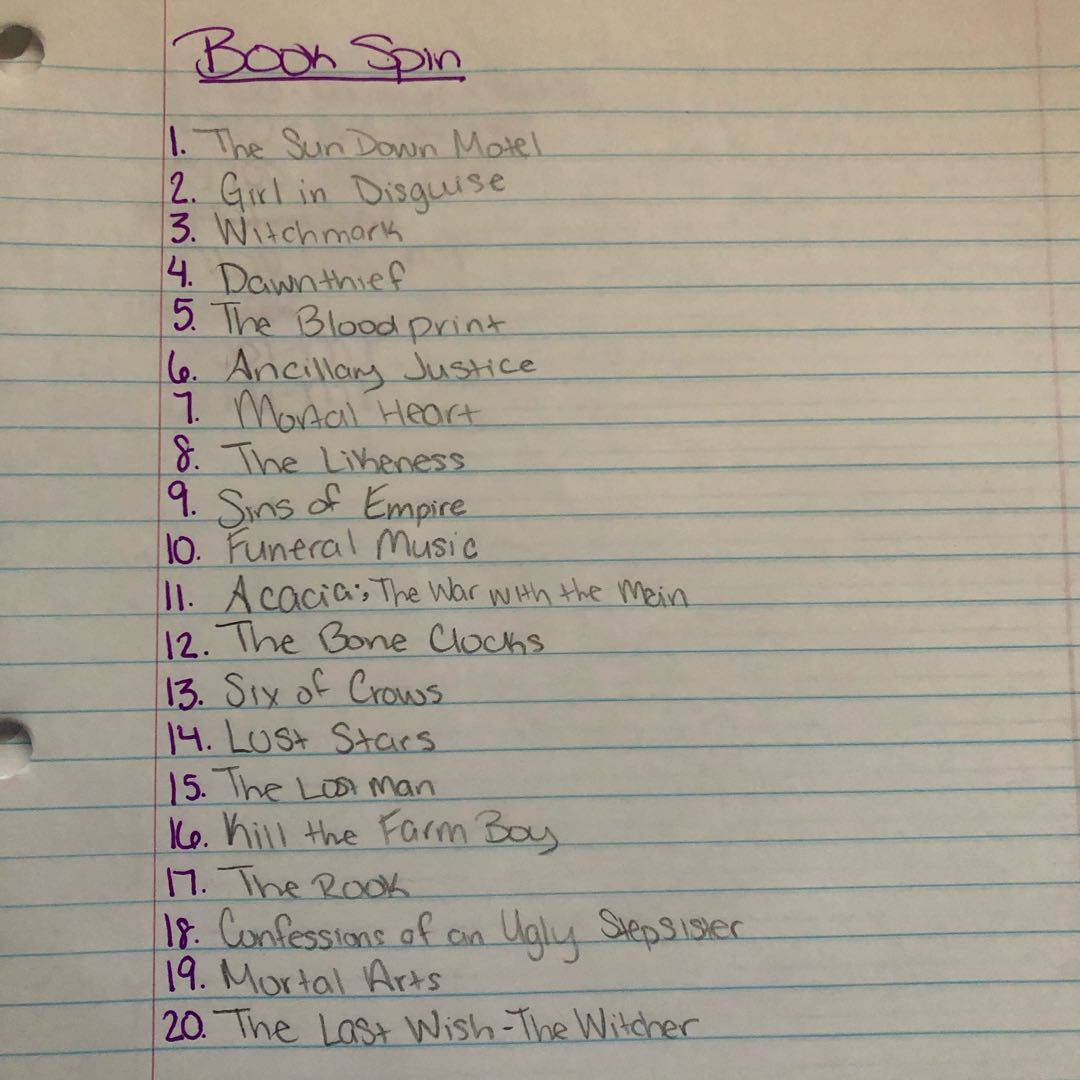 Book Spin
1. The Sun Down Motel
2. Girl in Disguise
3. Witchmark
4. Dawnthief
5. The Bloodprint
6. Ancillary Justice
7. Mortal Heart
8. The Likeness
9. Sins of Empire
10. Funeral Music
11. Acacia: The War with the Mein
12. The Bone Clocks
13. Six of Crows
14. Lost Stars
15. The Lost Man
16. Kill the Farm Boy
17. The Rook
18. Confessions of an Ugly Stepsister
19. Mortal Arts
20. The Last Wish - The Witcher